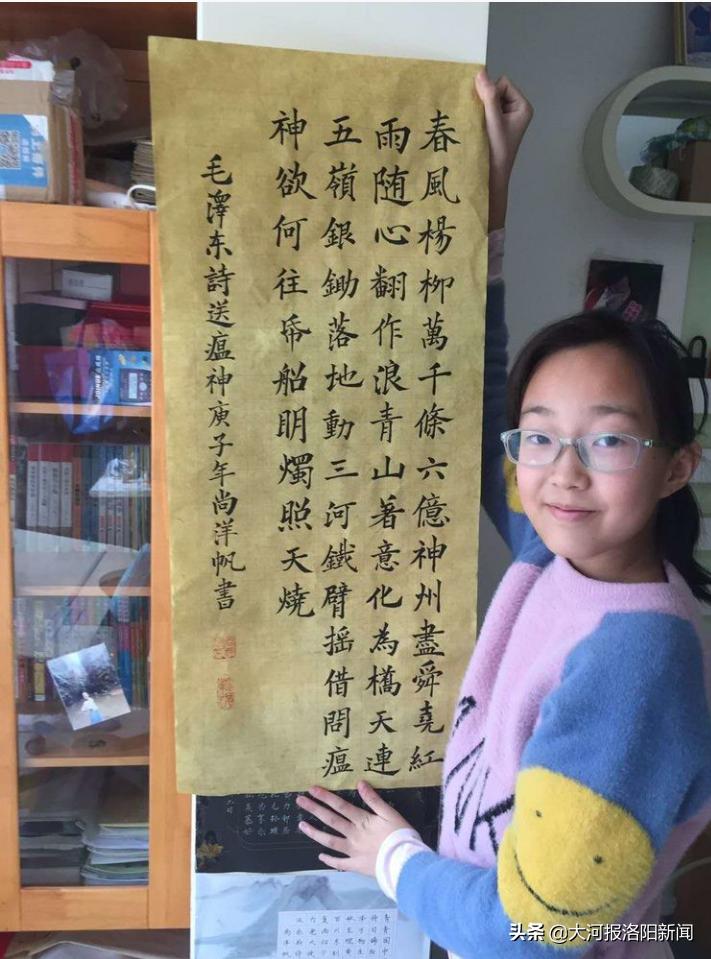 春風楊柳萬千條六億神州盡舜堯紅
雨随心翻作浪青山著意化為橋天連
五嶺銀鋤落地動三河鐵臂摇借問瘟
神欲何往帋船明燭照天燒
毛澤东詩送瘟神庚子年尚洋帆書
头条 @大河报洛阳新闻